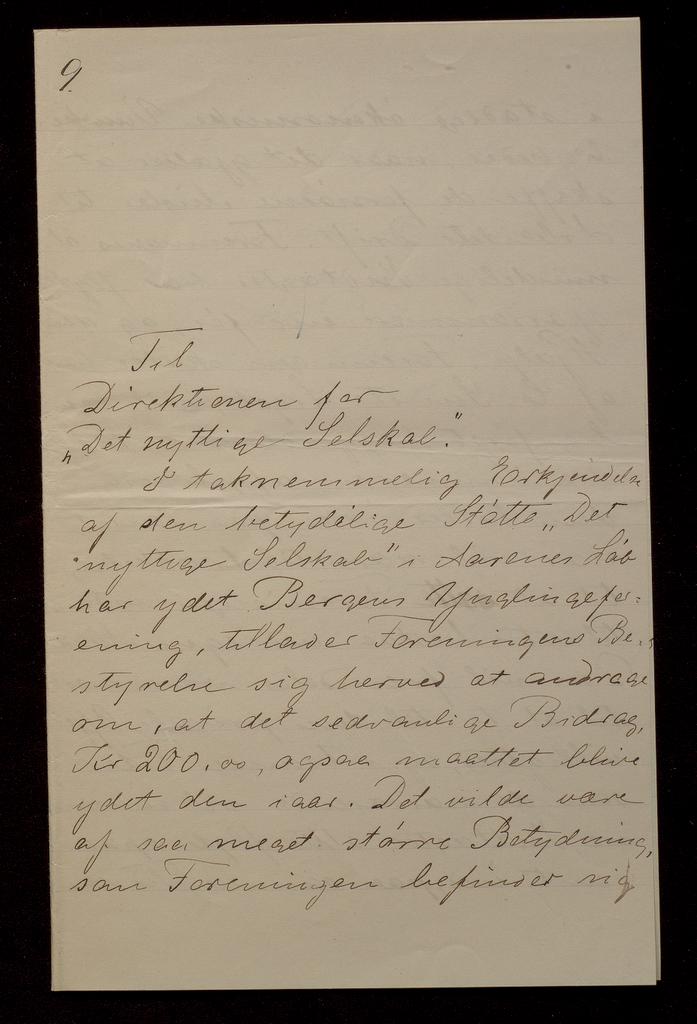 9.
Til
Direktionen for
„Det nyttige Selskab".
I taknemmelig Erkjendelse
af den betydelige Støtte „Det
nyttige Selskab" i Aarenes Løb
har ydet Bergens Ynglingefor=
ening, tillader Foreningens Be=
styrelse sig herved at andrage
om, at det sedvanlige Bidrag,
Kr 200.00, ogsaa maattet blive
ydet den iaar. Det vilde være
af saa meget større Betydning,
som Foreningen befinder sig